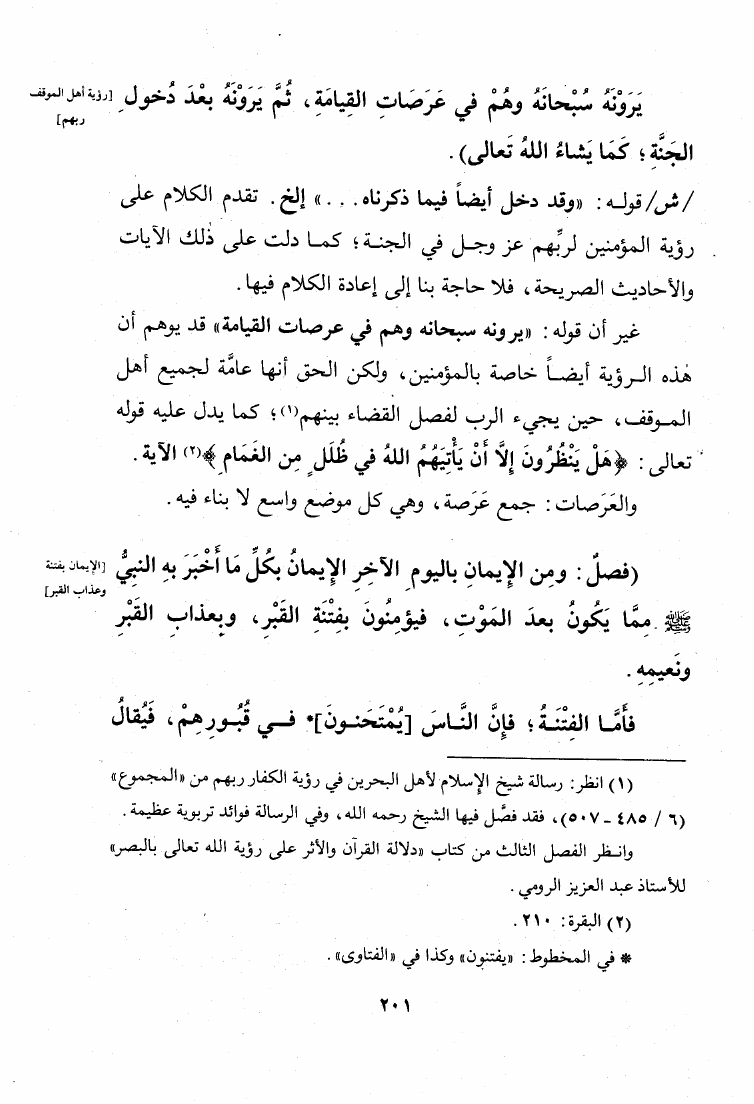 يَرَوْنَهُ سُبْحَانَهُ وهُمْ في عَرَصَاتِ القِيامَةِ، ثُمَّ يَرَوْنَهُ بعْدَ دُخولِ [رؤية أهل الموقف
ربهم]
الجَنَّةِ؛ كَمَا يَشاءُ اللهُ تَعالى).
/ش/ قوله: «وقد دخل أيضاً فيما ذكرناه. . .» إلخ. تقدم الكلام على
رؤية المؤمنين لربِّهم عز وجل في الجنة؛ كما دلت على ذٰلك الآيات
والأحاديث الصريحة، فلا حاجة بنا إلى إعادة الكلام فيها.
غير أن قوله: «يرونه سبحانه وهم في عرصات القيامة» قد يوهم أن
هٰذه الرؤية أيضاً خاصة بالمؤمنين، ولكن الحق أنها عامَّة لجميع أهل
الموقف، حين يجيء الرب لفصل القضاء بينهم(١)؛ كما يدل عليه قوله
تعالى: ﴿هَلْ يَنْظُرُونَ إِلَّا أَنْ يَأْتِيَهُمُ اللهُ في ظُلَلٍ مِن الغَمَامِ﴾(٢) الآية.
والعَرَصات: جمع عَرَصة، وهي كل موضع واسع لا بناء فيه.
(فصلٌ: ومِن الإِيمانِ باليومِ الآخرِ الإِيمانُ بكُلِّ مَا أَخْبَرَ بهِ النبيُّ [الإيمان بفتنة
وعذاب القبر]
ﷺ مِمَّا يَكُونُ بعدَ المَوْتِ، فيؤمِنُونَ بفِتْنَةِ القَبْرِ، وبعذابِ القَبْرِ
ونَعيمِهِ.
فأَمَّا الفِتْنَةُ؛ فإِنَّ النَّاسَ [يُمْتَحَنونَ]* في قُبُورِهِمْ، فَيُقالُ
(١) انظر: رسالة شيخ الإسلام لأهل البحرين في رؤية الكفار ربهم من «المجموع»
(٦ / ٤٨٥ ـ ٥٠٧)، فقد فصَّل فيها الشيخ رحمه الله، وفي الرسالة فوائد تربوية عظيمة.
وانظر الفصل الثالث من كتاب «دلالة القرآن والأثر على رؤية الله تعالى بالبصر»
للأستاذ عبد العزيز الرومي.
(٢) البقرة: ٢١٠.
* في المخطوط: «يفتنون» وكذا في «الفتاوى».
٢٠١